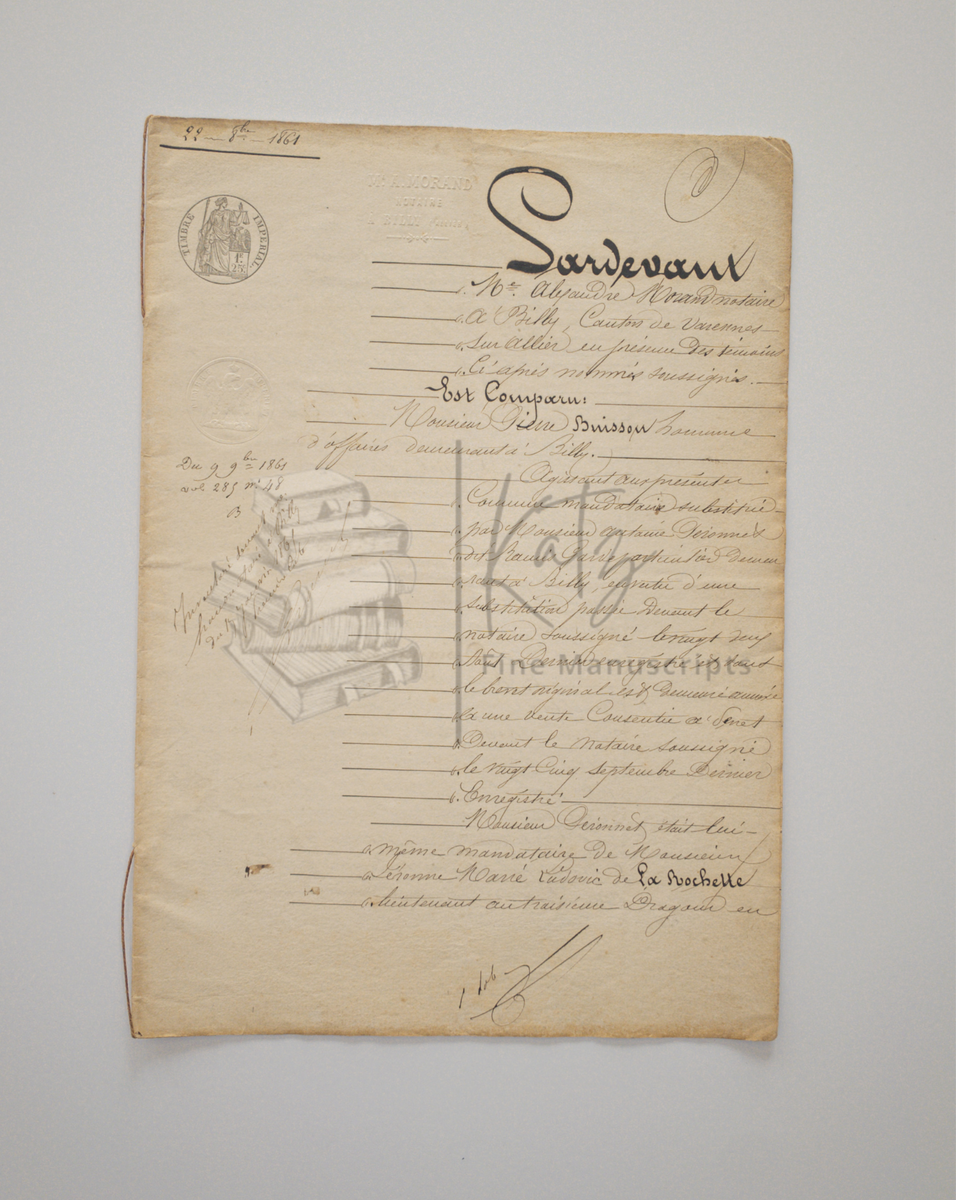 22 8bre 1861
Me A. MORAND
NOTAIRE
A BILLY
TIMBRE IMPERIAL
1F.
25C.
Pardevant
Me. Alexandre Morand notaire
A Billy, Canton de Varennes
Sur Allier en présence des témoins
Ci après nommés soussignés.
Est Comparu:
Monsieur Pierre Buisson homme
d'affaires demeurant à Billy.
Agissant aux présentes
Comme mandataire substitué
par Monsieur antoine Péronnet
dit garde particulier demeu
rant à Billy, en vertu d'une
Substitution passée devant le
notaire soussigné le vingt deux
Aout Dernier enregistré et dont
le brevet original est demeuré annexé
à une vente Consentie à
Devant le notaire soussigné
le vingt Cinq Septembre Dernier
Enregistré
Monsieur Péronnet était lui-
même mandataire de Monsieur
Jéromme Marie Ludovic de La Rochette
lieutenant au troisième Dragons en
Du 9 9bre 1861
vol 285 n° 48
B
Katz
Fine Manuscripts